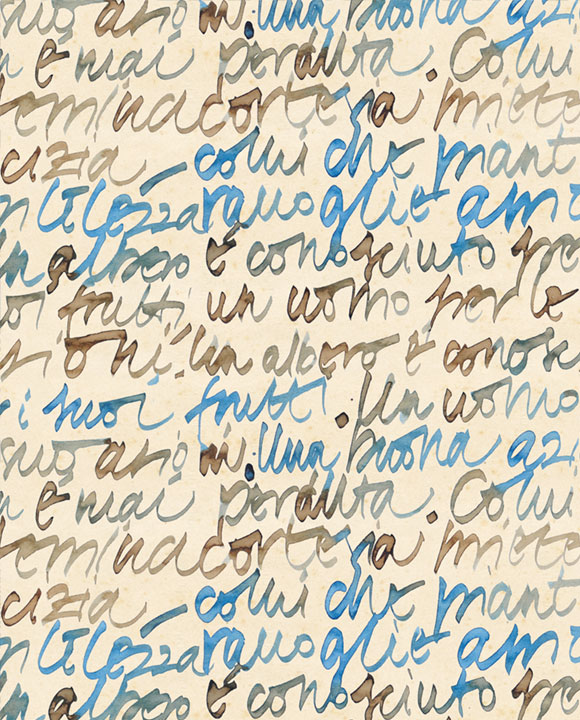 suo azioni. Una buona azi
a è mai perduta. Colui
emina cortesia miete
cizia _ colui che mant
n tilezza raccoglie amo
Un albero è conosciuto pe
oi frutti un uomo per le
zioni. Un albero è conosc
r i suoi frutti. Un uomo
suo azioni. Una buona azi
a è mai perduta. Colui
emina cortesia miete
cizia _ colui che mant
n tilezza raccoglie amo
n albero è conosciuto pe